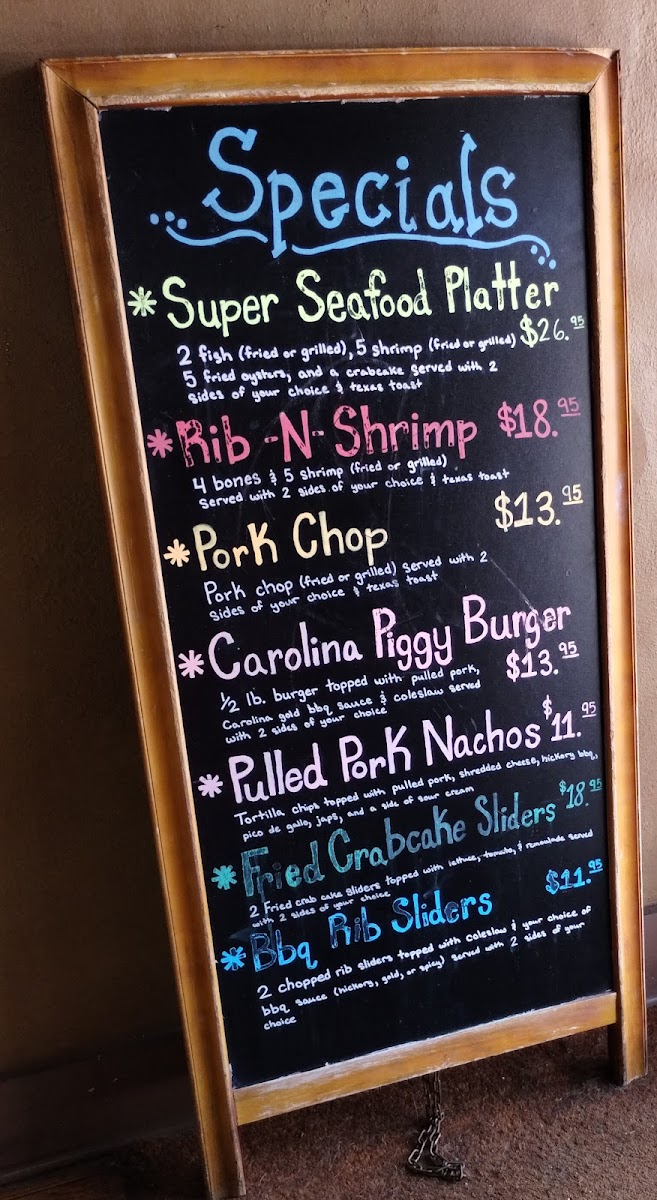 Specials
* Super Seafood Platter
$26.95
2 fish (fried or grilled), 5 shrimp (fried or grilled)
5 fried oysters, and a crabcake served with 2
sides of your choice & texas toast
* Rib -N- Shrimp $18.95
4 bones & 5 shrimp (fried or grilled)
served with 2 sides of your choice & texas toast
* Pork Chop $13.95
Pork chop (fried or grilled) served with 2
sides of your choice & texas toast
* Carolina Piggy Burger
$13.95
1/2 lb. burger topped with pulled pork,
Carolina gold bbq sauce & coleslaw served
with 2 sides of your choice
* Pulled Pork Nachos $11.95
Tortilla chips topped with pulled pork, shredded cheese, hickory bbq,
pico de gallo, japs, and a side of sour cream
* Fried Crabcake Sliders $18.95
2 Fried crab cake sliders topped with lettuce, tomato, & remoulade served
with 2 sides of your choice
* Bbq Rib Sliders $11.95
2 chopped rib sliders topped with coleslaw & your choice of
bbq sauce (hickory, gold, or spicy) served with 2 sides of your
choice